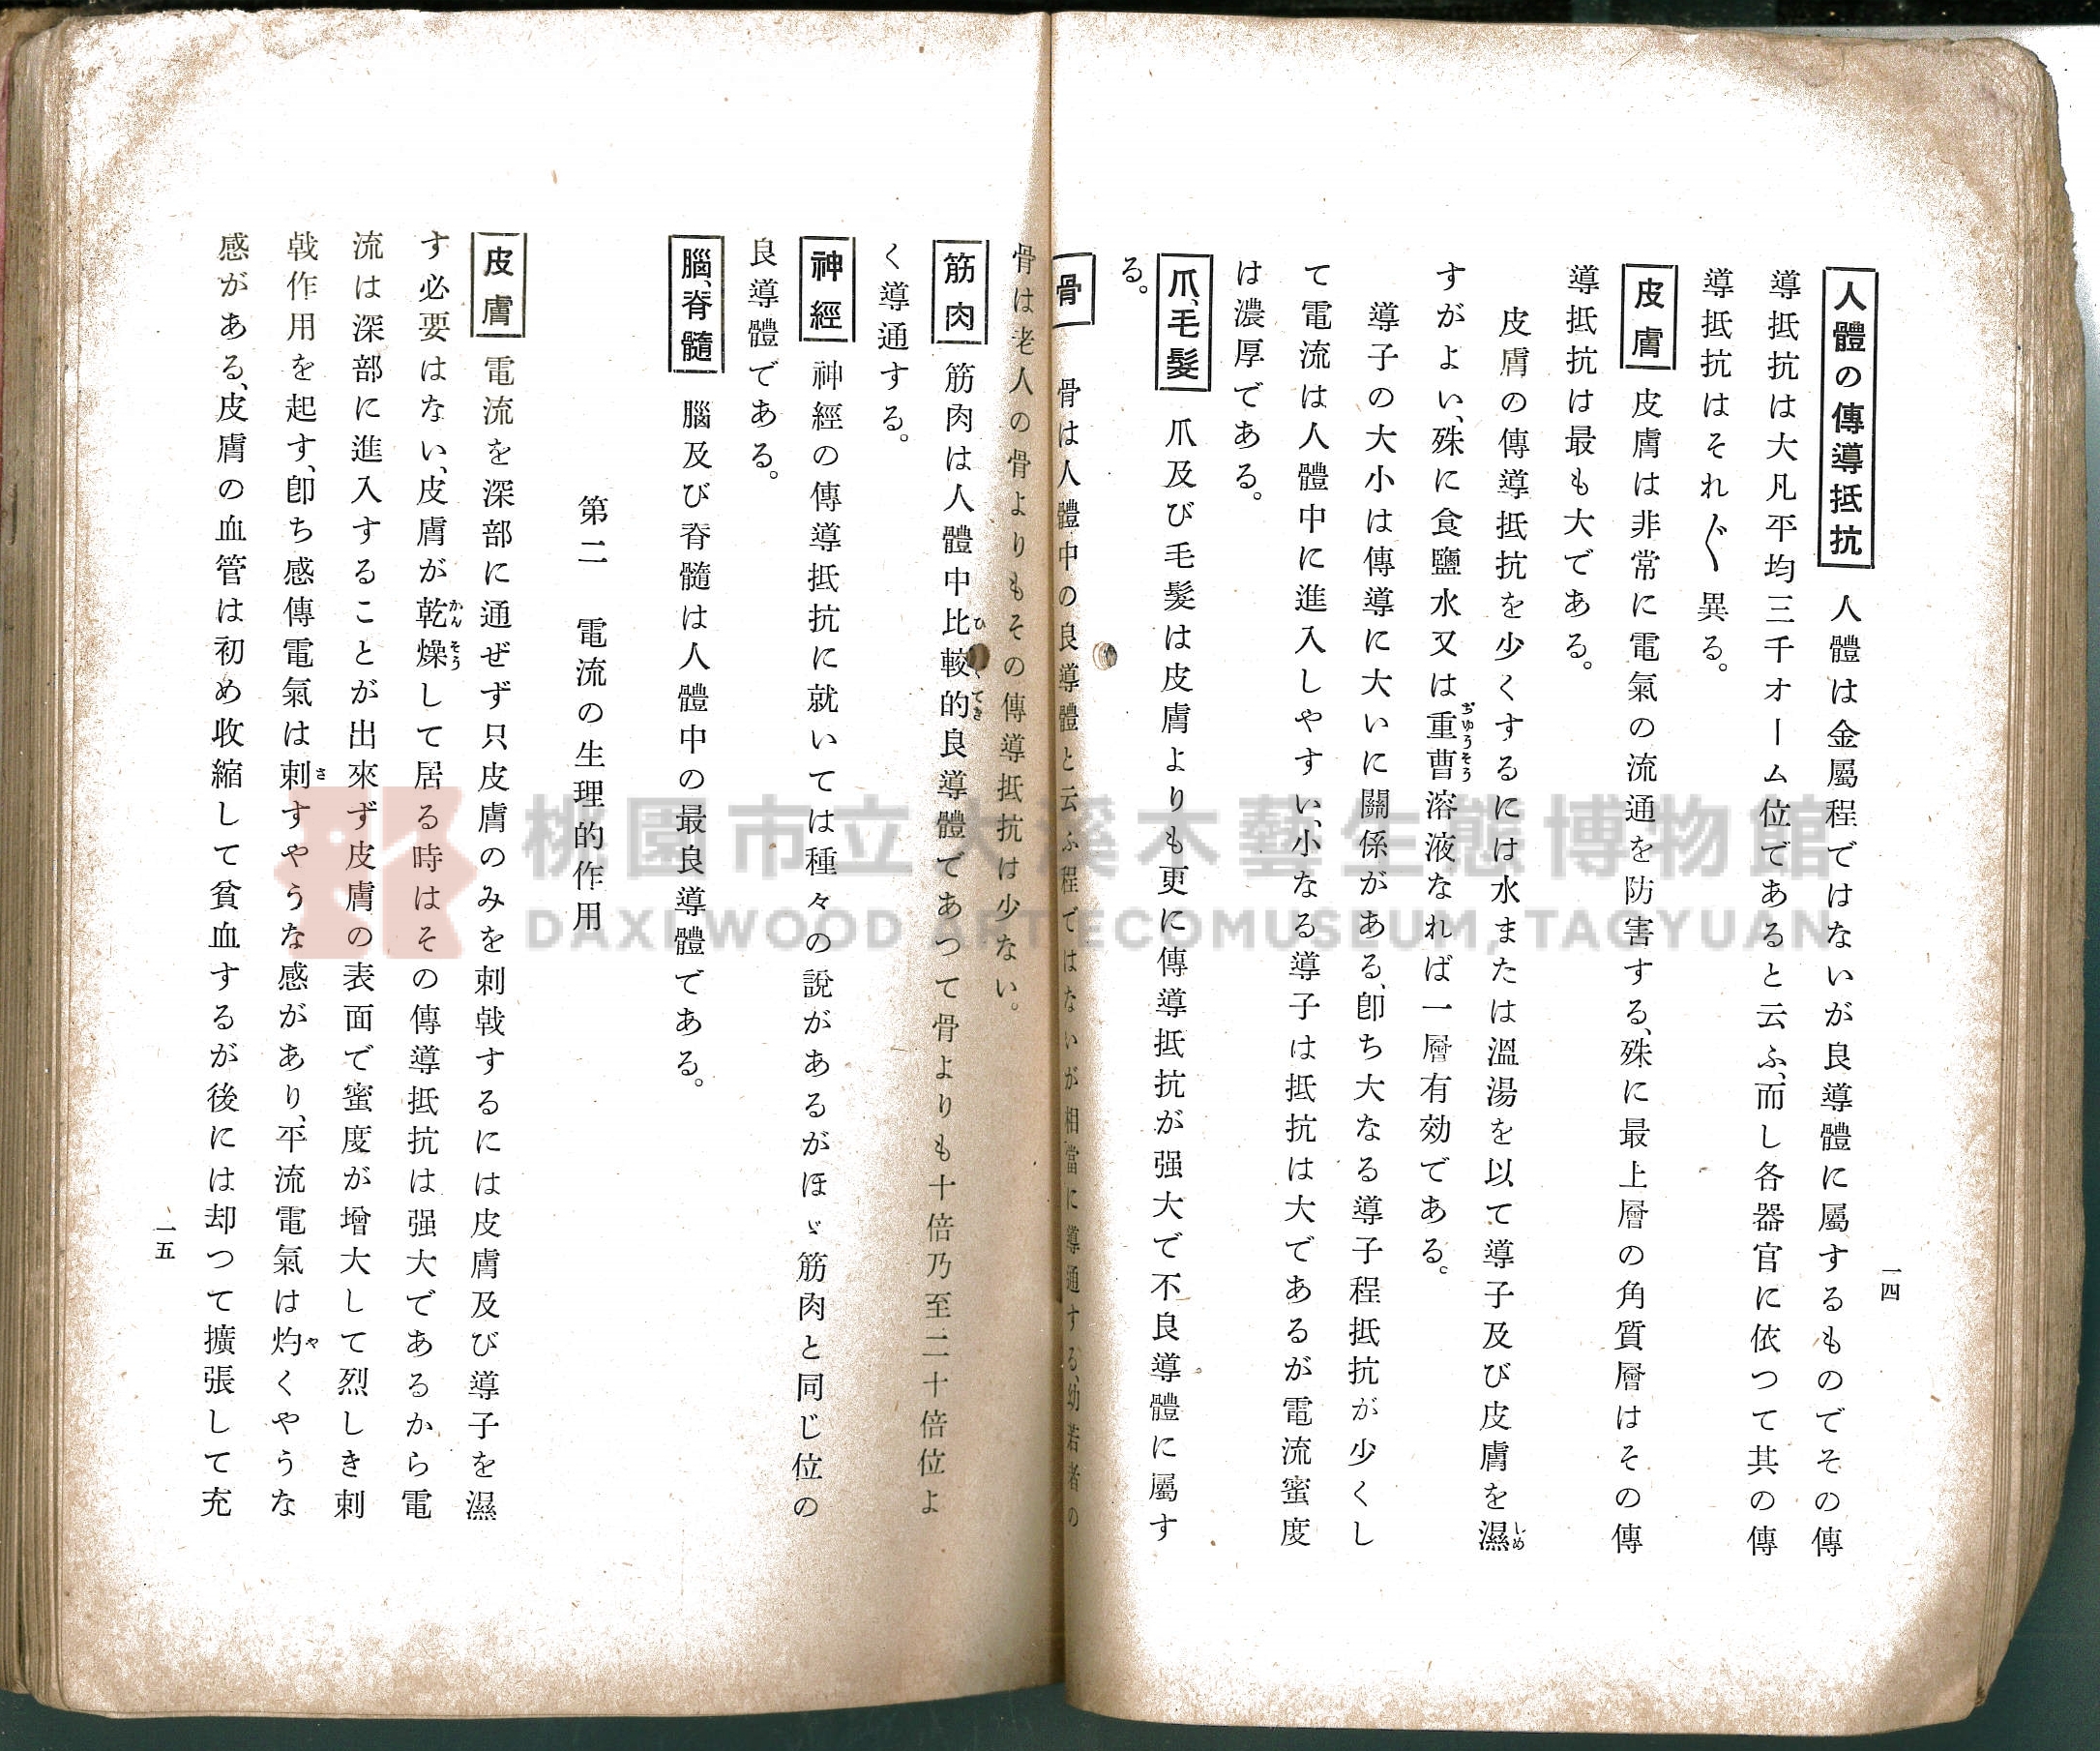 一四
人體の傳導抵抗 人體は金屬程ではないが良導體に屬するものでその傳
導抵抗は大凡平均三千オーム位であると云ふ、而し各器官に依つて其の傳
導抵抗はそれ〴〵異る。
皮膚 皮膚は非常に電氣の流通を防害する、殊に最上層の角質層はその傳
導抵抗は最も大である。
皮膚の傳導抵抗を少くするには水または溫湯を以て導子及び皮膚を濕しめ
すがよい、殊に食鹽水又は重曹ぢゆうそう溶液なれば一層有効である。
導子の大小は傳導に大いに關係がある、卽ち大なる導子程抵抗が少くし
て電流は人體中に進入しやすい、小なる導子は抵抗は大であるが電流蜜度
は濃厚である。
爪、毛髮 爪及び毛髮は皮膚よりも更に傳導抵抗が强大で不良導體に屬す
る。
骨 骨は人體中の良導體と云ふ程ではないが相當に導通する、幼若者の
骨は老人の骨よりもその傳導抵抗は少ない。
筋肉 筋肉は人體中比較的良導體であつて骨よりも十倍乃至二十倍位よ
く導通する。
神經 神經の傳導抵抗に就いては種々の說があるがほゞ筋肉と同じ位の
良導體である。
腦、脊髓 腦及び脊髓は人體中の最良導體である。
第二 電流の生理的作用
皮膚 電流を深部に通ぜず只皮膚のみを刺戟するには皮膚及び導子を濕
す必要はない、皮膚が乾燥かんそうして居る時はその傳導抵抗は强大であるから電
流は深部に進入することが出來ず皮膚の表面で蜜度が增大して烈しき刺
戟作用を起す、卽ち感傳電氣は刺さすやうな感があり、平流電氣は灼やくやうな
感がある、皮膚の血管は初め收縮して貧血するが後には却つて擴張して充
一五
桃園市立大溪木藝生態博物館
DAXI WOOD ART ECOMUSEUM, TAOYUAN